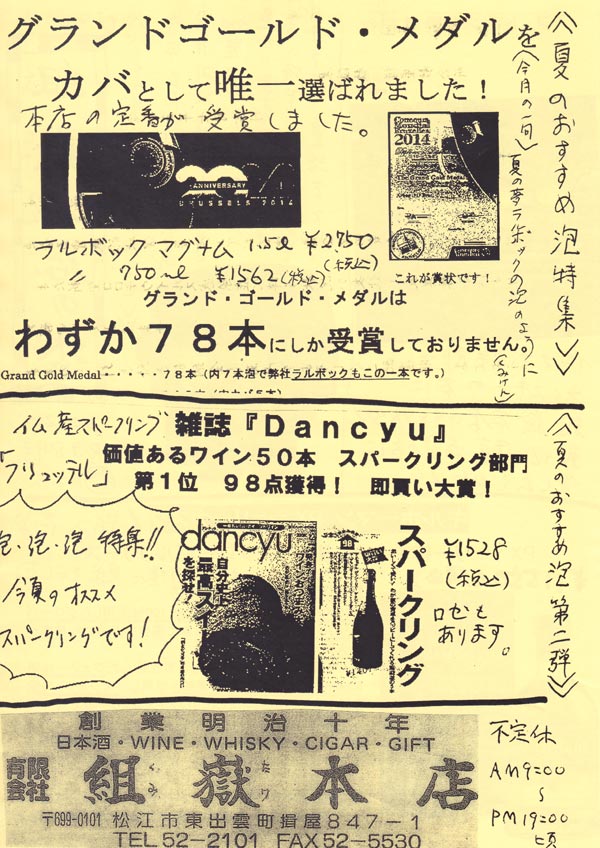 グランドゴールド・メダルを
カバとして唯一選ばれました!
本店の定番が受賞しました。
ANNIVERSARY
BRUSSELS 2014
Concours Mondial Bruxelles
2014
The Grand Gold Medal
ラルボック マグナム 1.5ℓ ¥2750 (税込)
〃 750ml ¥1562 (税込)
これが賞状です!
グランド・ゴールド・メダルは
わずか78本にしか受賞しておりません。
Grand Gold Medal・・・・・78本(内7本泡で弊社ラルボックもこの一本です。)
《夏のおすすめ泡特集》
〈今月の一句〉
夏の夢ラルボックの泡のように
スパークリング
「フリュッテル」
雑誌『Dancyu』
価値あるワイン50本 スパークリング部門
第1位 98点獲得! 即買い大賞!
泡、泡、泡 特集!!
今夏のオススメ
スパークリングです!
dancyu
自分史上
最高スイ
を探せ!
98
スパークリング
¥1528
(税込)
ロゼも
あります。
《夏のおすすめ泡第二弾》
創業明治十年
日本酒・WINE・WHISKY・CIGAR・GIFT
有限会社 組嶽本店
くみ たけ
〒699-0101 松江市東出雲町揖屋847-1
TEL 52-2101 FAX 52-5530
不定休
AM9:00
~
PM19:00
頃